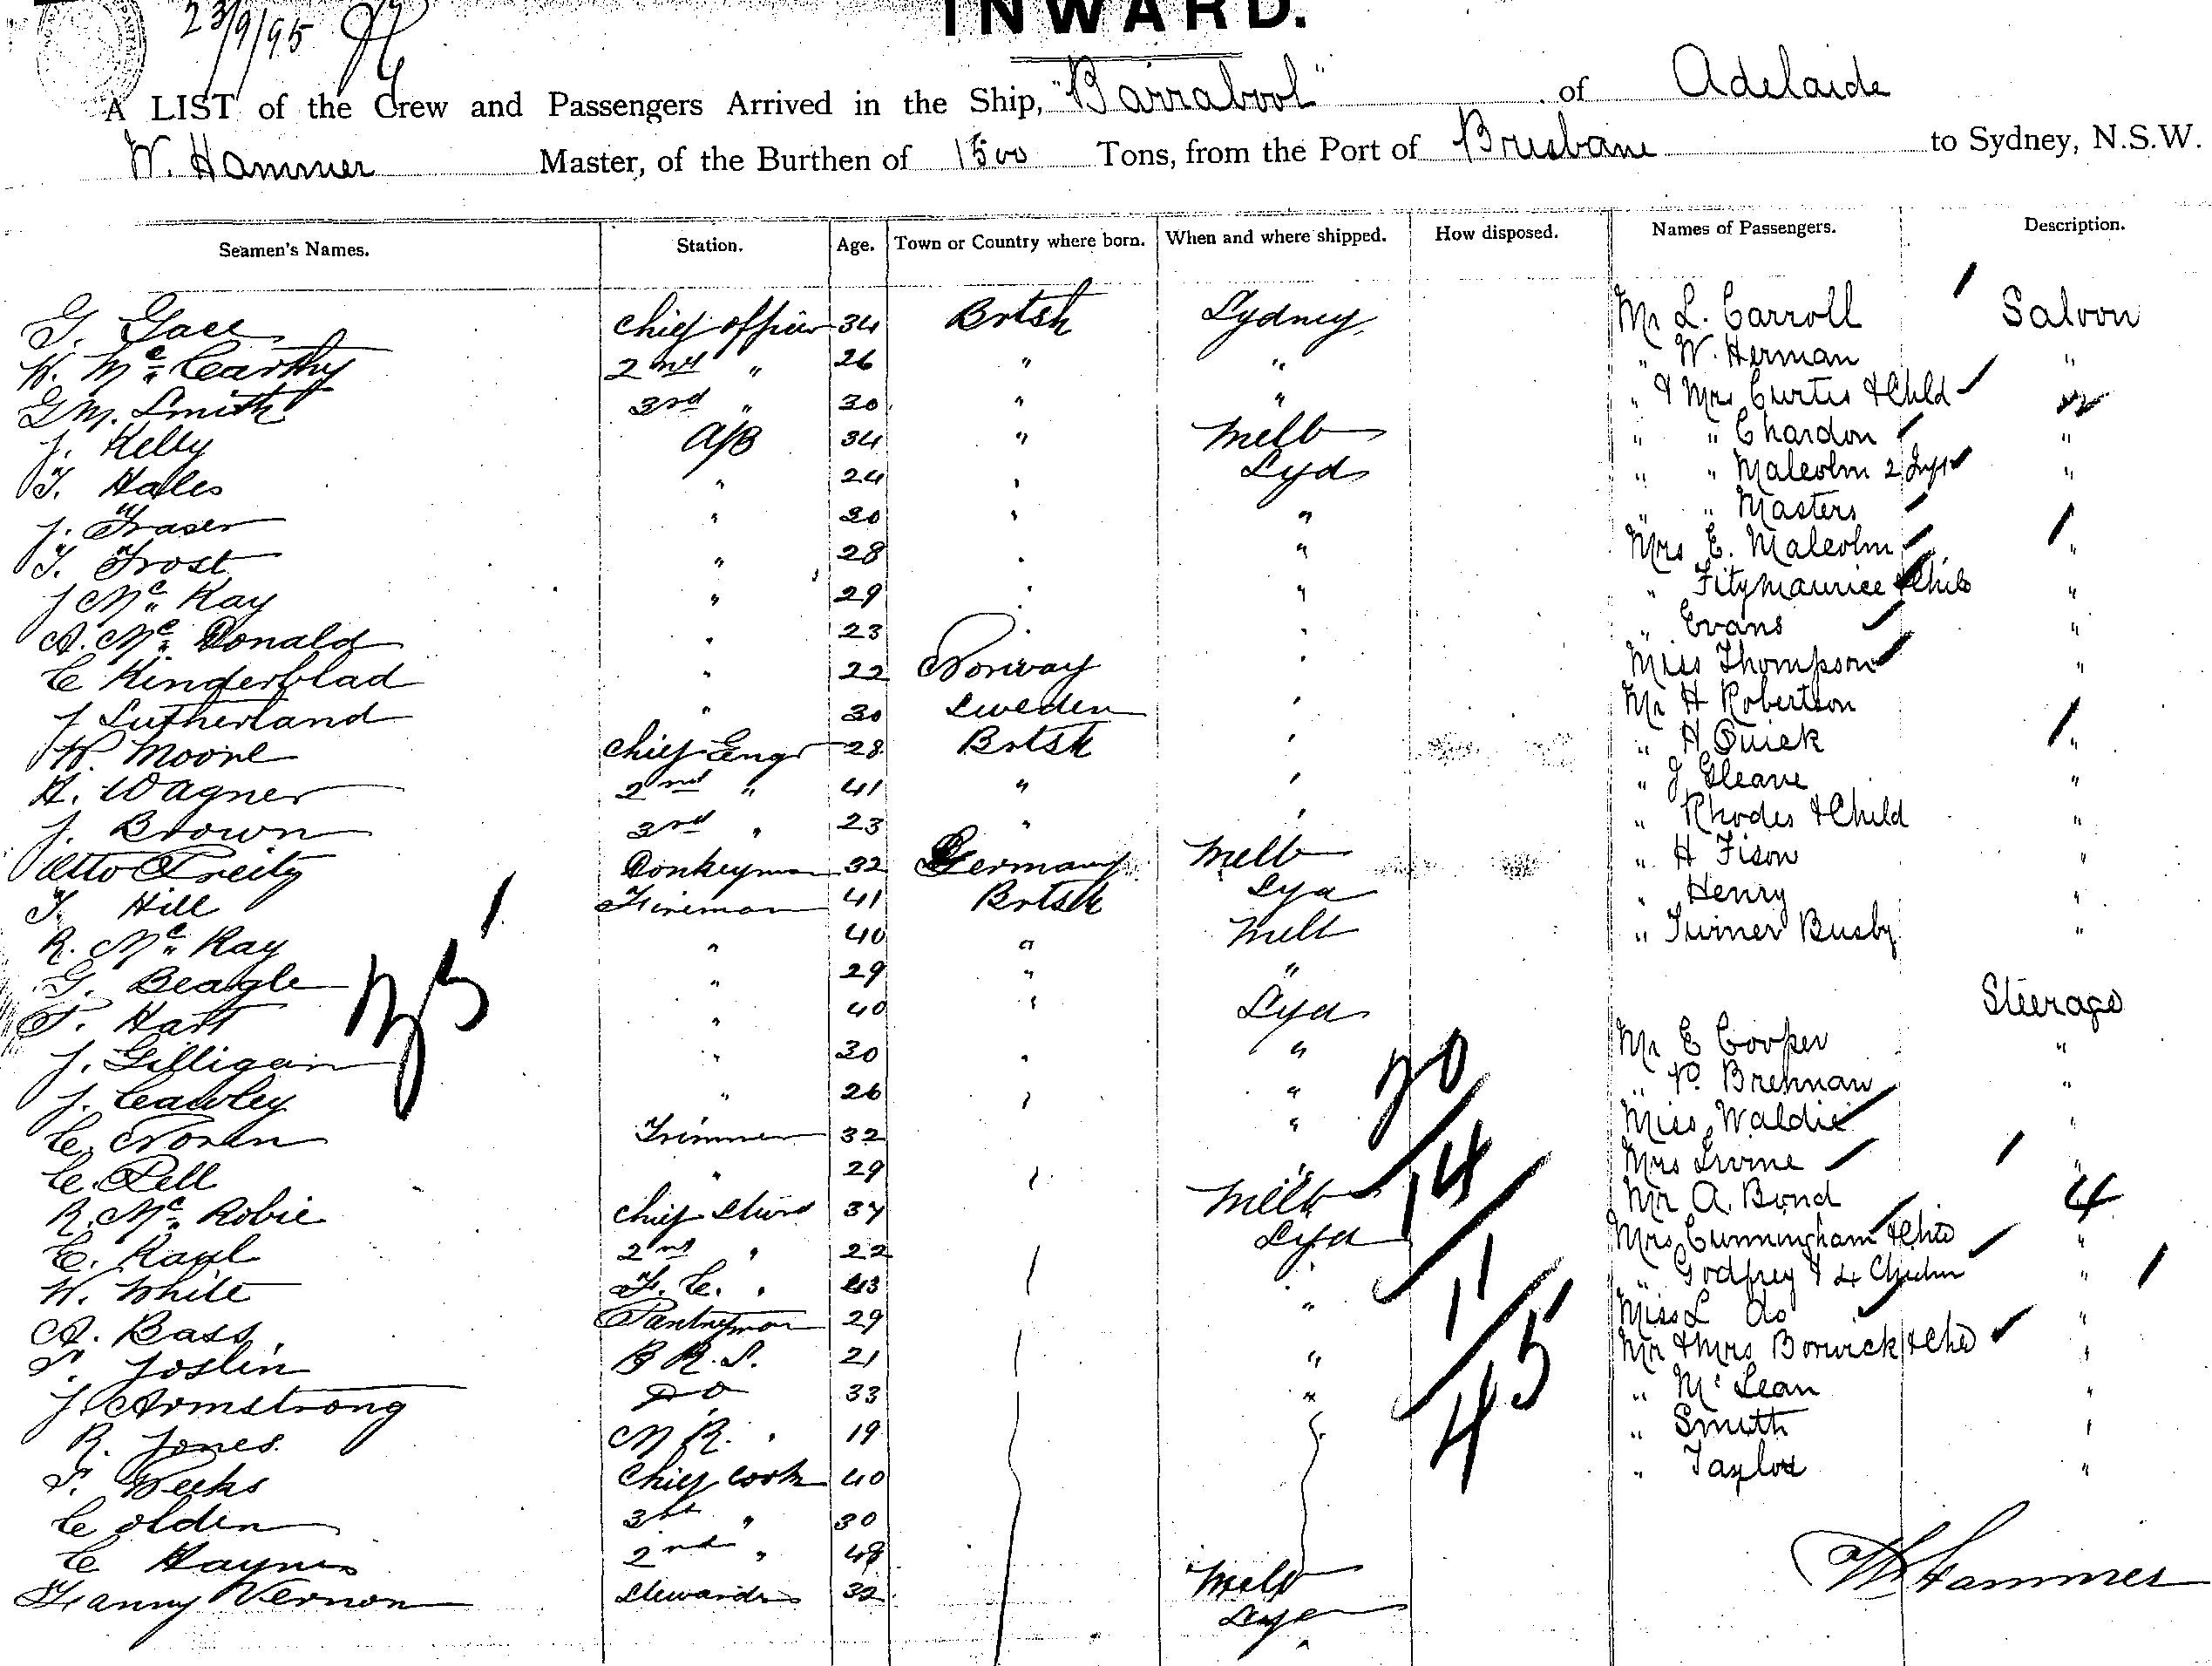 23/9/95
INWARD.
A LIST of the Crew and Passengers Arrived in the Ship, "Barrabool" of Adelaide
W. Hammer Master, of the Burthen of 1500 Tons, from the Port of Brisbane to Sydney, N.S.W.
Seamen's Names. Station. Age. Town or Country where born. When and where shipped. How disposed. Names of Passengers. Description.
G. Chief officer 34 Brtsh Sydney, Mr L. Carroll Saloon
W. Mc Carthy 2nd " 26 " " " W. Herman "
G M. Smith 3rd " 30 " " " & Mrs Curtis & Child
J. Kelly A/B 34 " Melb " " Chardon "
T. Hales " 24 " Syd " " Malcolm 2 "
J. Fraser " 20 " " " " Masters
T. Frost " 28 " " Mrs E. Malcolm "
J Mc Kay " 29 " " " Fitzmaurice & Child "
A. Mc Donald " 23 " " " Evans "
C Kinderblad " 22 Norway " Miss Thompson "
J Sutherland " 30 Sweden " Mr H Robertson
W. Moore Chief Engr 28 Brtsh " " H Quick "
H. Wagner 2nd " 41 " " " J Gleave "
J. Brown 3rd " 23 " " " Rhodes & Child "
Otto Donkeyman 32 Germany Melb " H Fison "
T. Hill Fireman 41 Brtsh Syd " Henry "
R. Mc Kay " 40 " Melb " Turner Busby "
G. Beagle " 29 " "
T. Hart " 40 " Syd Steerage
J. Gilligan " 30 " " Mr E Cooper "
J. Cawley " 26 " " " P. Brennan "
C. Noran Trimmer 32 " Miss Waldie "
C. Pell " 29 " " Mrs Irvine "
R. Mc Robie Chief Stwrd 37 Melb Mr A. Bond 4
C. Karl 2nd " 22 Syd Mrs Cunningham & Child "
W. White F. C. " 43 " " Godfrey & 4 Children "
A. Bass Pantryman 29 " Miss L do "
S. Joslin B R. S. 21 " Mr & Mrs Borwick & Chd "
J. Armstrong Do 33 " " Mc Lean "
R. Jones M R. " 19 " Smith "
S. Weeks Chief Cook 40 " Taylor "
C Olden " 30
C Haynes 2nd " 48 Melb
Fanny Vernon Stewardess 32 Syd
35
20
14
11
45
W Hammer